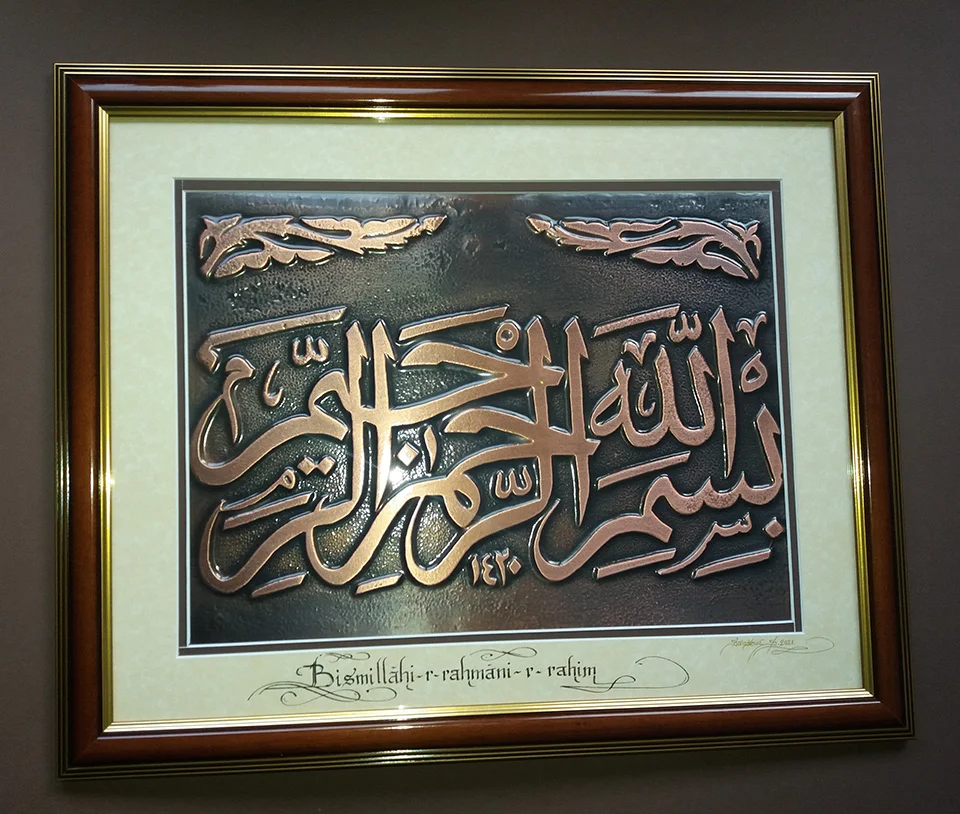 بسم الله الرحمن الرحيم
١٤٢٠
Bismillāhi-r-rahmāni-r-rahim